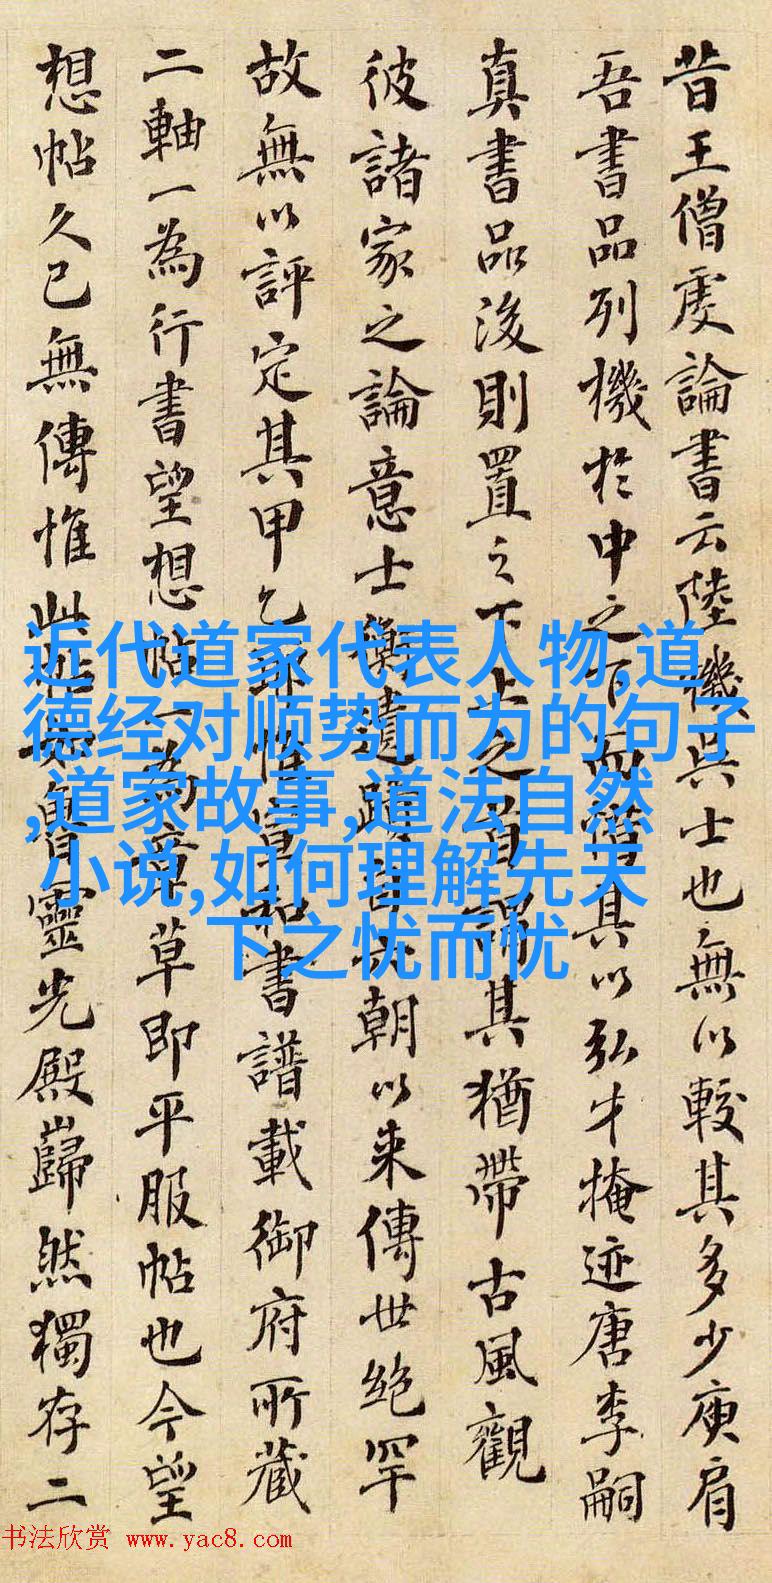 昔王僧虔論書云陸機吳士也無以較其多少庾肩
吾書品列機於中之下而惜其以弘才掩迹唐李嗣
真書品後則置之下上之首謂其猶帶古風觀
彼諸家之論意士衡遺蹟自六朝以来傳世絶罕
故無以評定其甲乙耶惟宣和書譜載御府所藏
二軸一為行書望想帖一為章草即平服帖也今望
想帖久已無傳惟此帖如魯靈光殿巋然獨存二
近代道家代表人物,道
德经对顺势而为的句子
,道家故事,道法自然
小说,如何理解先天
下之忧而忧
书法欣赏 www.yac8.com